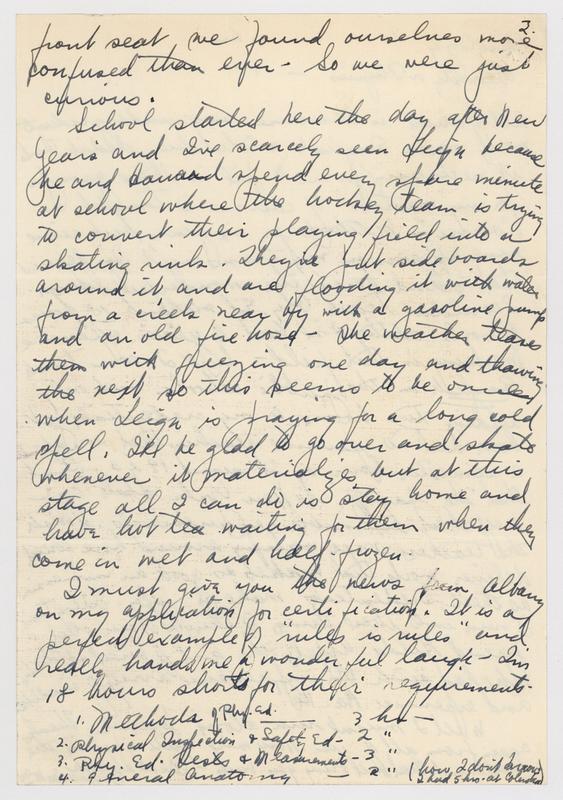 3.
front seat we found ourselves more
confused than ever - So we were just
curious.
School started here the day after New
Years and I've scarcely seen Leigh because
he and spend every spare minute
at school where the hockey team is trying
to convert their playing field into a
skating rink. They've put side boards
around it and are flooding it with water
from a creek near by with a gasoline pump
and an old fire hose - The weather tease
them with freezing one day and thawing
the next so this seems to be once
when Leigh is praying for a long cold
spell. I'll be glad to go over and skate
whenever it materializes but at this
stage all I can do is stay home and
have hot tea waiting for them when they
come in wet and half-frozen.
I must give you the news from Albany
on my application for certification. It is a
perfect example of "rules is rules" and
really hands me a wonderful laugh - I'm
18 hours short for their requirements-
1. Methods of Phy. Ed. 3 hr -
2. Physical Inspection & Safety Ed - 2 "
3. Phy. Ed. Tests & Measurements - 3 "
4. General Anatomy - 2 " (how I don't know
I had 5 hrs. at Columbia